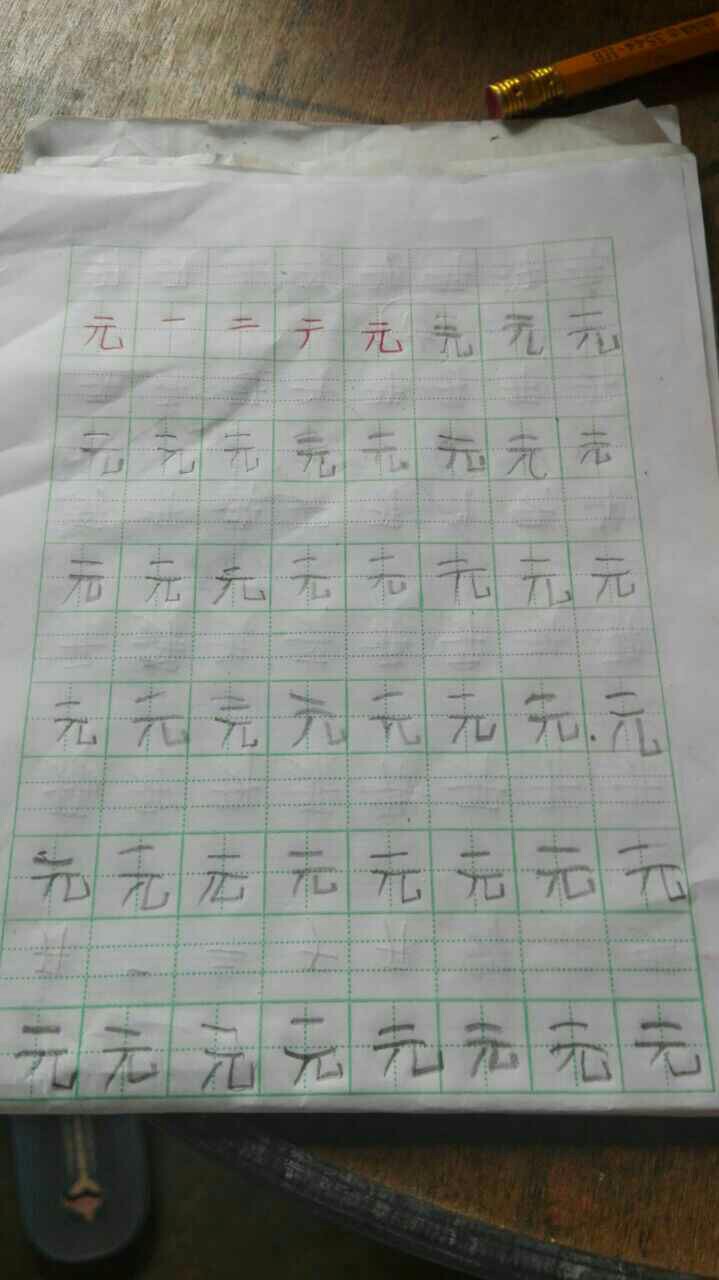 3544-HB
元 一 二 亍 元 元 元 元
元 元 元 元 元 元 元 元
元 元 元 元 元 元 元 元
元 元 元 元 元 元 元 元
元 元 元 元 元 元 元 元
元 元 元 元 元 元 元 元